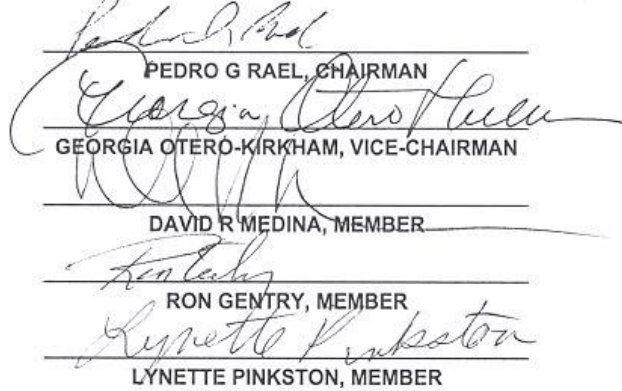 PEDRO G RAEL, CHAIRMAN
Georgia Otero
GEORGIA OTERO-KIRKHAM, VICE-CHAIRMAN
DAVID R MEDINA, MEMBER
RON GENTRY, MEMBER
Lynette Pinkston
LYNETTE PINKSTON, MEMBER